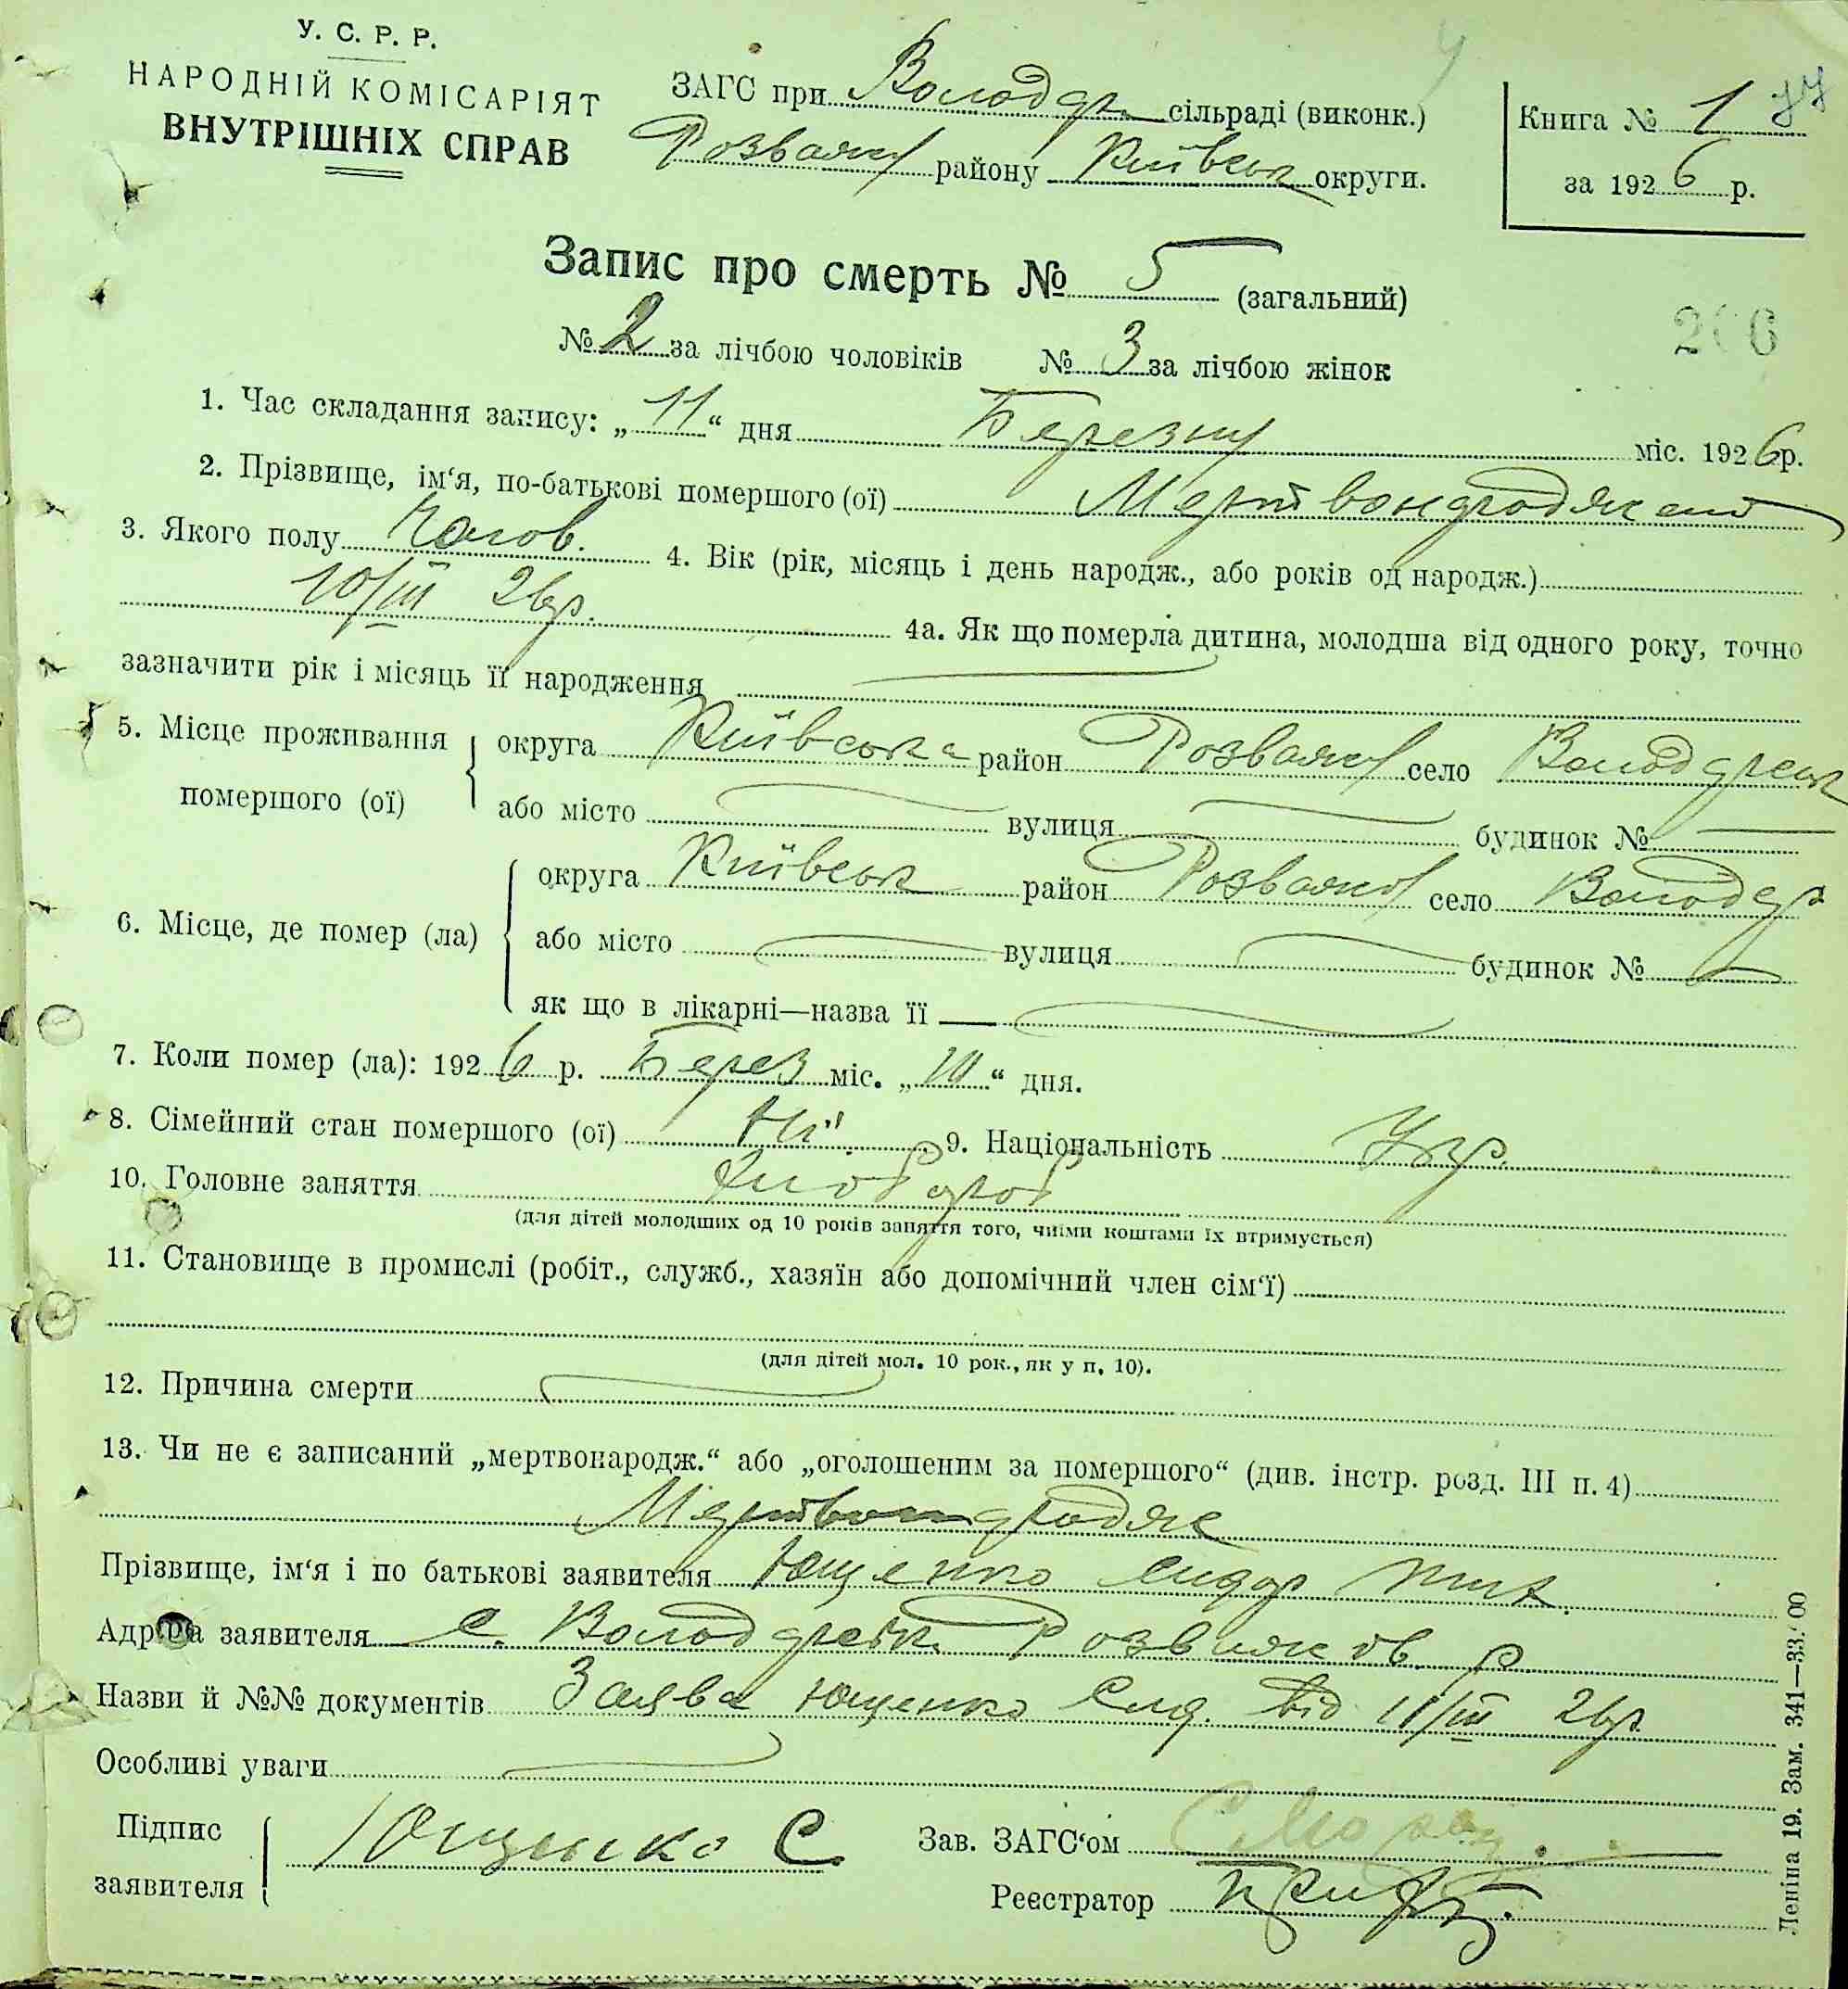 У. С. Р. Р.
НАРОДНІЙ КОМІСАРІЯТ
ВНУТРІШНІХ СПРАВ
ЗАГС при Володар сільраді (виконк.)
Розваж району Київськ округи.
Книга № 1
за 1926 р.
Запис про смерть № 5 (загальний)
№ 2 за лічбою чоловіків № 3 за лічбою жінок
206
1. Час складання запису: „11“ дня Березня міс. 1926р.
2. Прізвище, ім‘я, по-батькові помершого (ої)
3. Якого полу Чолов. 4. Вік (рік, місяць і день народж., або років од народж.)
10/III 26р. 4а. Як що померла дитина, молодша від одного року, точно
зазначити рік і місяць її народження
5. Місце проживання помершого (ої) округа Київська район Розваж село
або місто вулиця будинок №
6. Місце, де помер (ла) округа Київськ район Розваж село Володар
або місто вулиця будинок №
як що в лікарні—назва її
7. Коли помер (ла): 1926 р. Берез міс. „10“ дня.
8. Сімейний стан помершого (ої) 9. Національність Укр.
10. Головне заняття Хлібороб
(для дітей молодших од 10 років заняття того, чиїми коштами їх втримується)
11. Становище в промислі (робіт., служб., хазяїн або допомічний член сім‘ї)
(для дітей мол. 10 рок., як у п. 10).
12. Причина смерти
13. Чи не є записаний „мертвонародж.“ або „оголошеним за помершого“ (див. інстр. розд. III п. 4)
Прізвище, ім‘я і по батькові заявителя Ющенко Сидор
Адреса заявителя с. Розважів. р
Назви й №№ документів Заява Ющенко Сид. від 11/III 26р.
Особливі уваги
Підпис заявителя Ющенко С
Зав. ЗАГС‘ом
Реєстратор
Леніна 19. Зам. 341—33.000